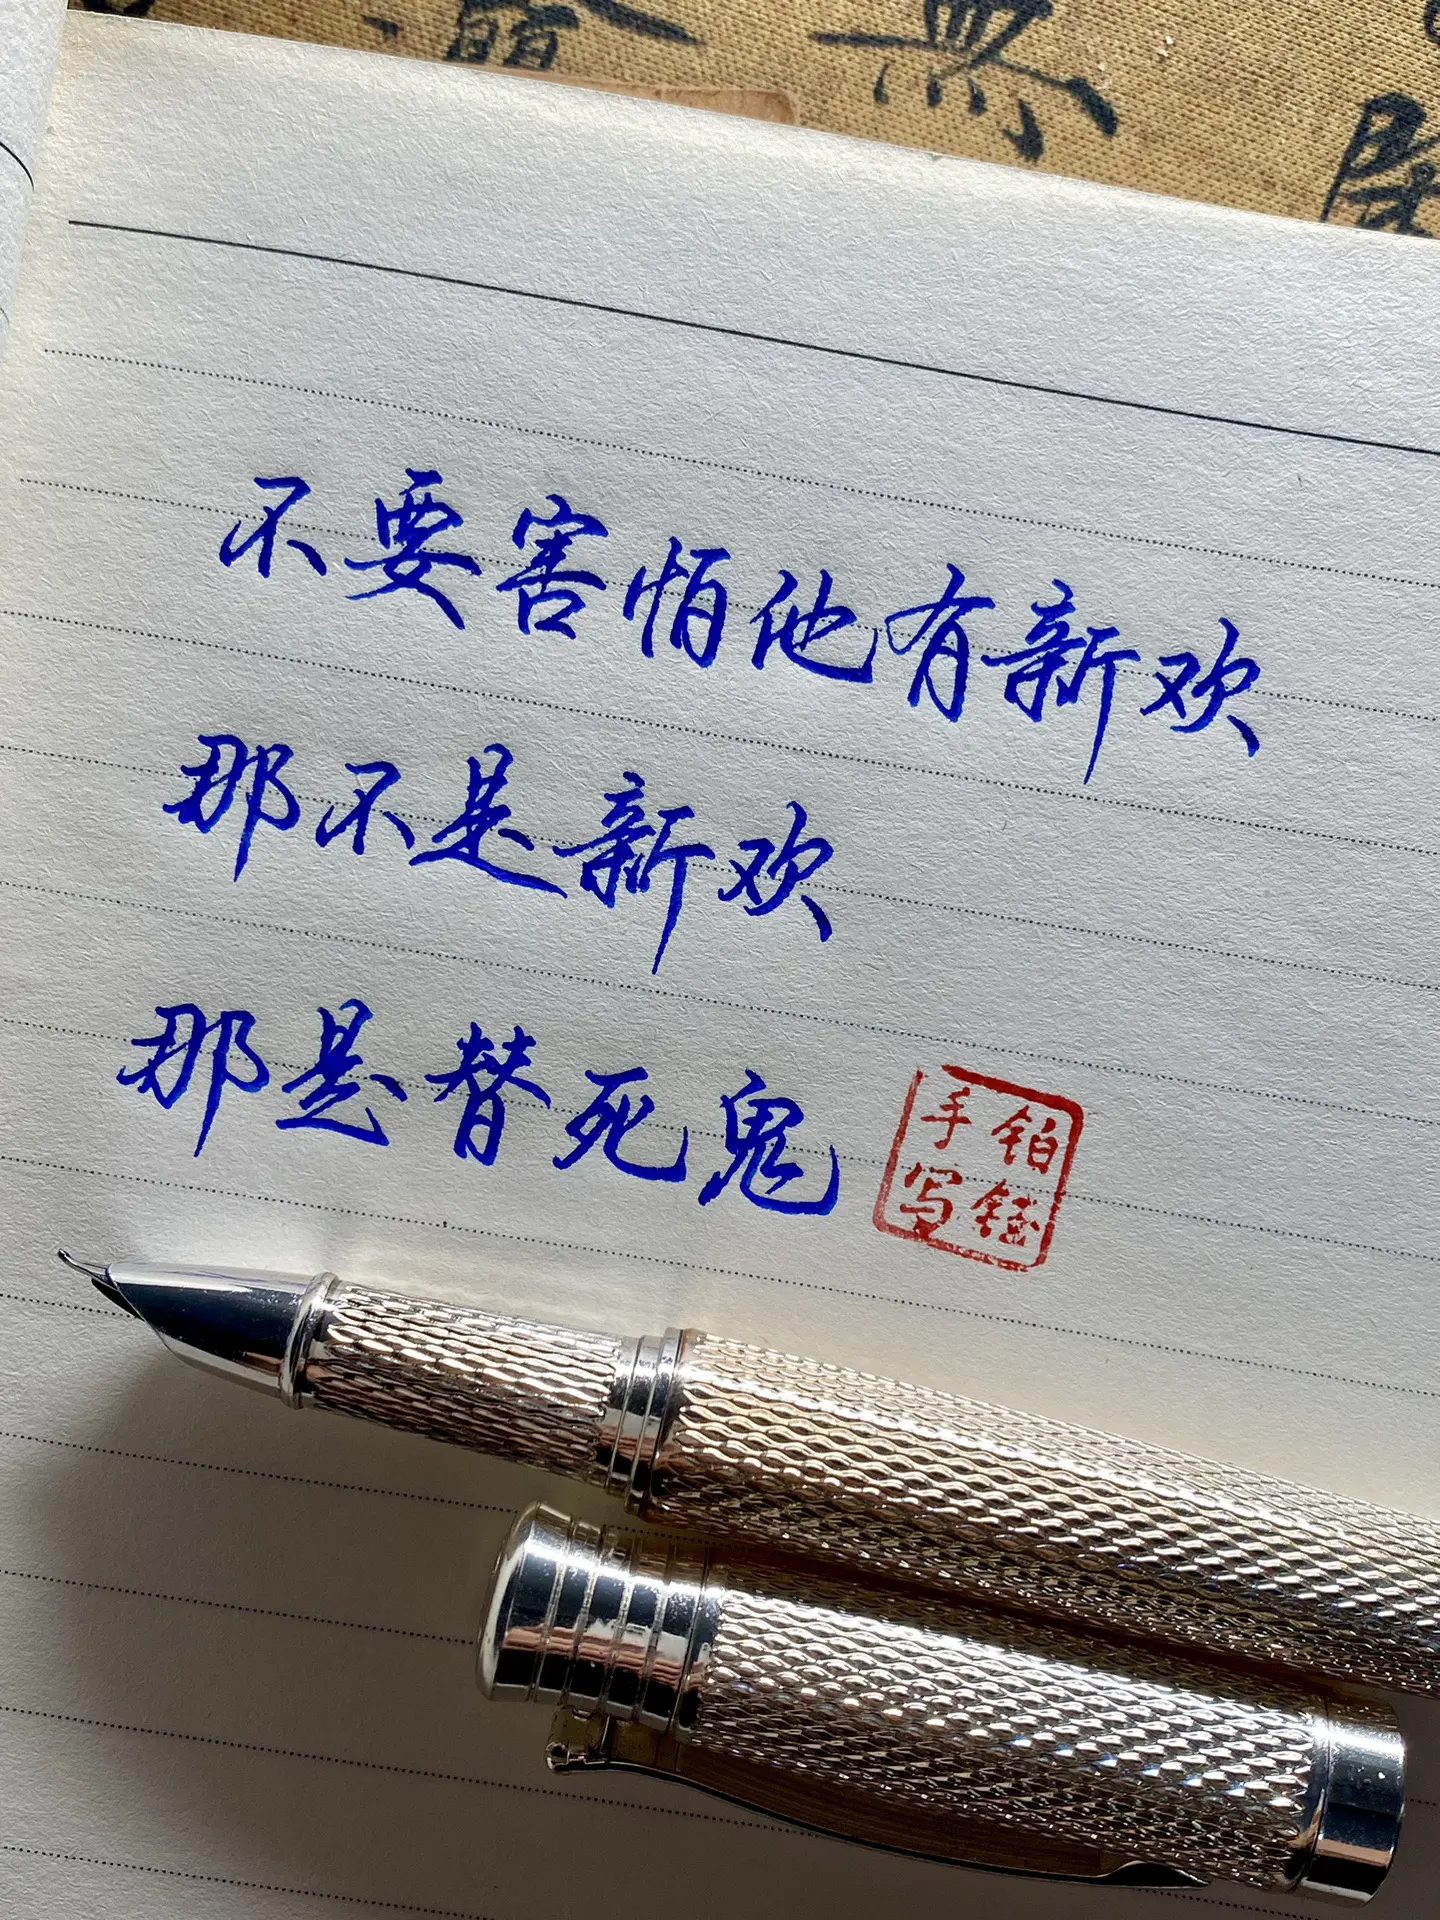 無
不要害怕他有新欢
那不是新欢
那是替死鬼
铂铥
手写